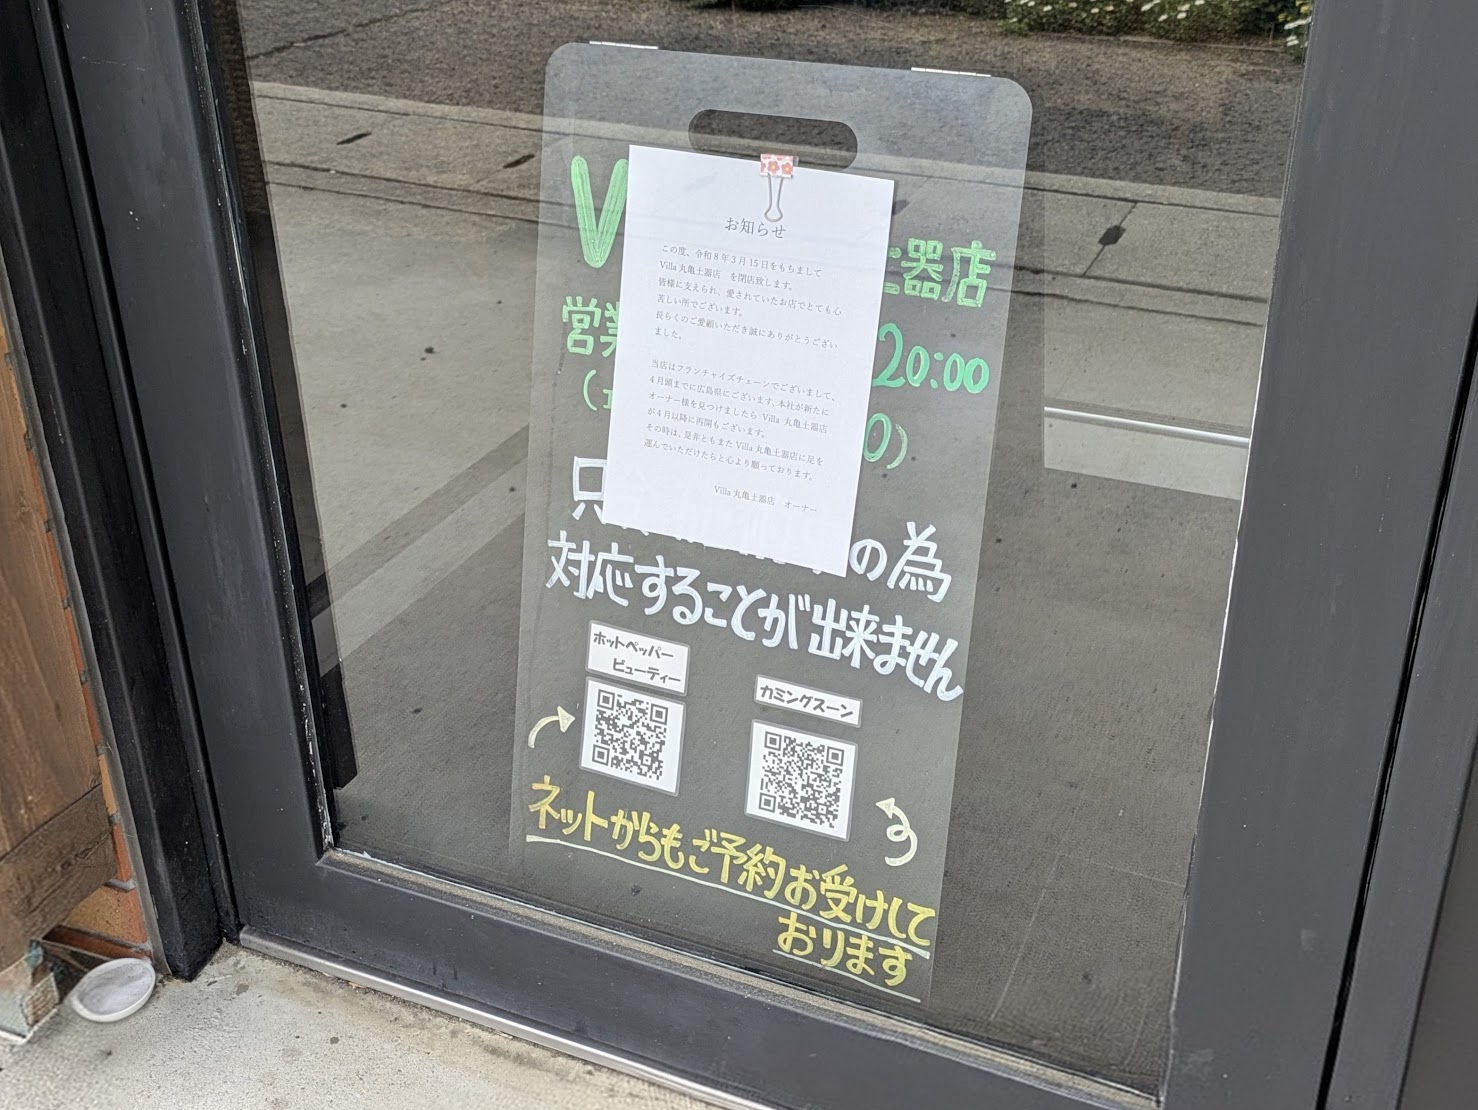 お知らせ
この度、令和8年3月15日をもちまして
Villa丸亀土器店 を閉店致します。
皆様に支えられ、愛されていたお店でとても心
苦しい所でございます。
長らくのご愛顧いただき誠にありがとうござい
ました。
当店はフランチャイズチェーンでございまして、
4月頭までに広島県にございます、本社が新たに
オーナー様を見つけましたら Villa 丸亀土器店
が4月以降に再開もございます。
その時は、是非ともまた Villa 丸亀土器店に足を
運んでいただけたらと心より願っております。
Villa 丸亀土器店 オーナー
V 器店
営業 20:00
只 の為
対応することが出来ません
ホットペッパー
ビューティー
カミングスーン
ネットからもご予約お受けして
おります